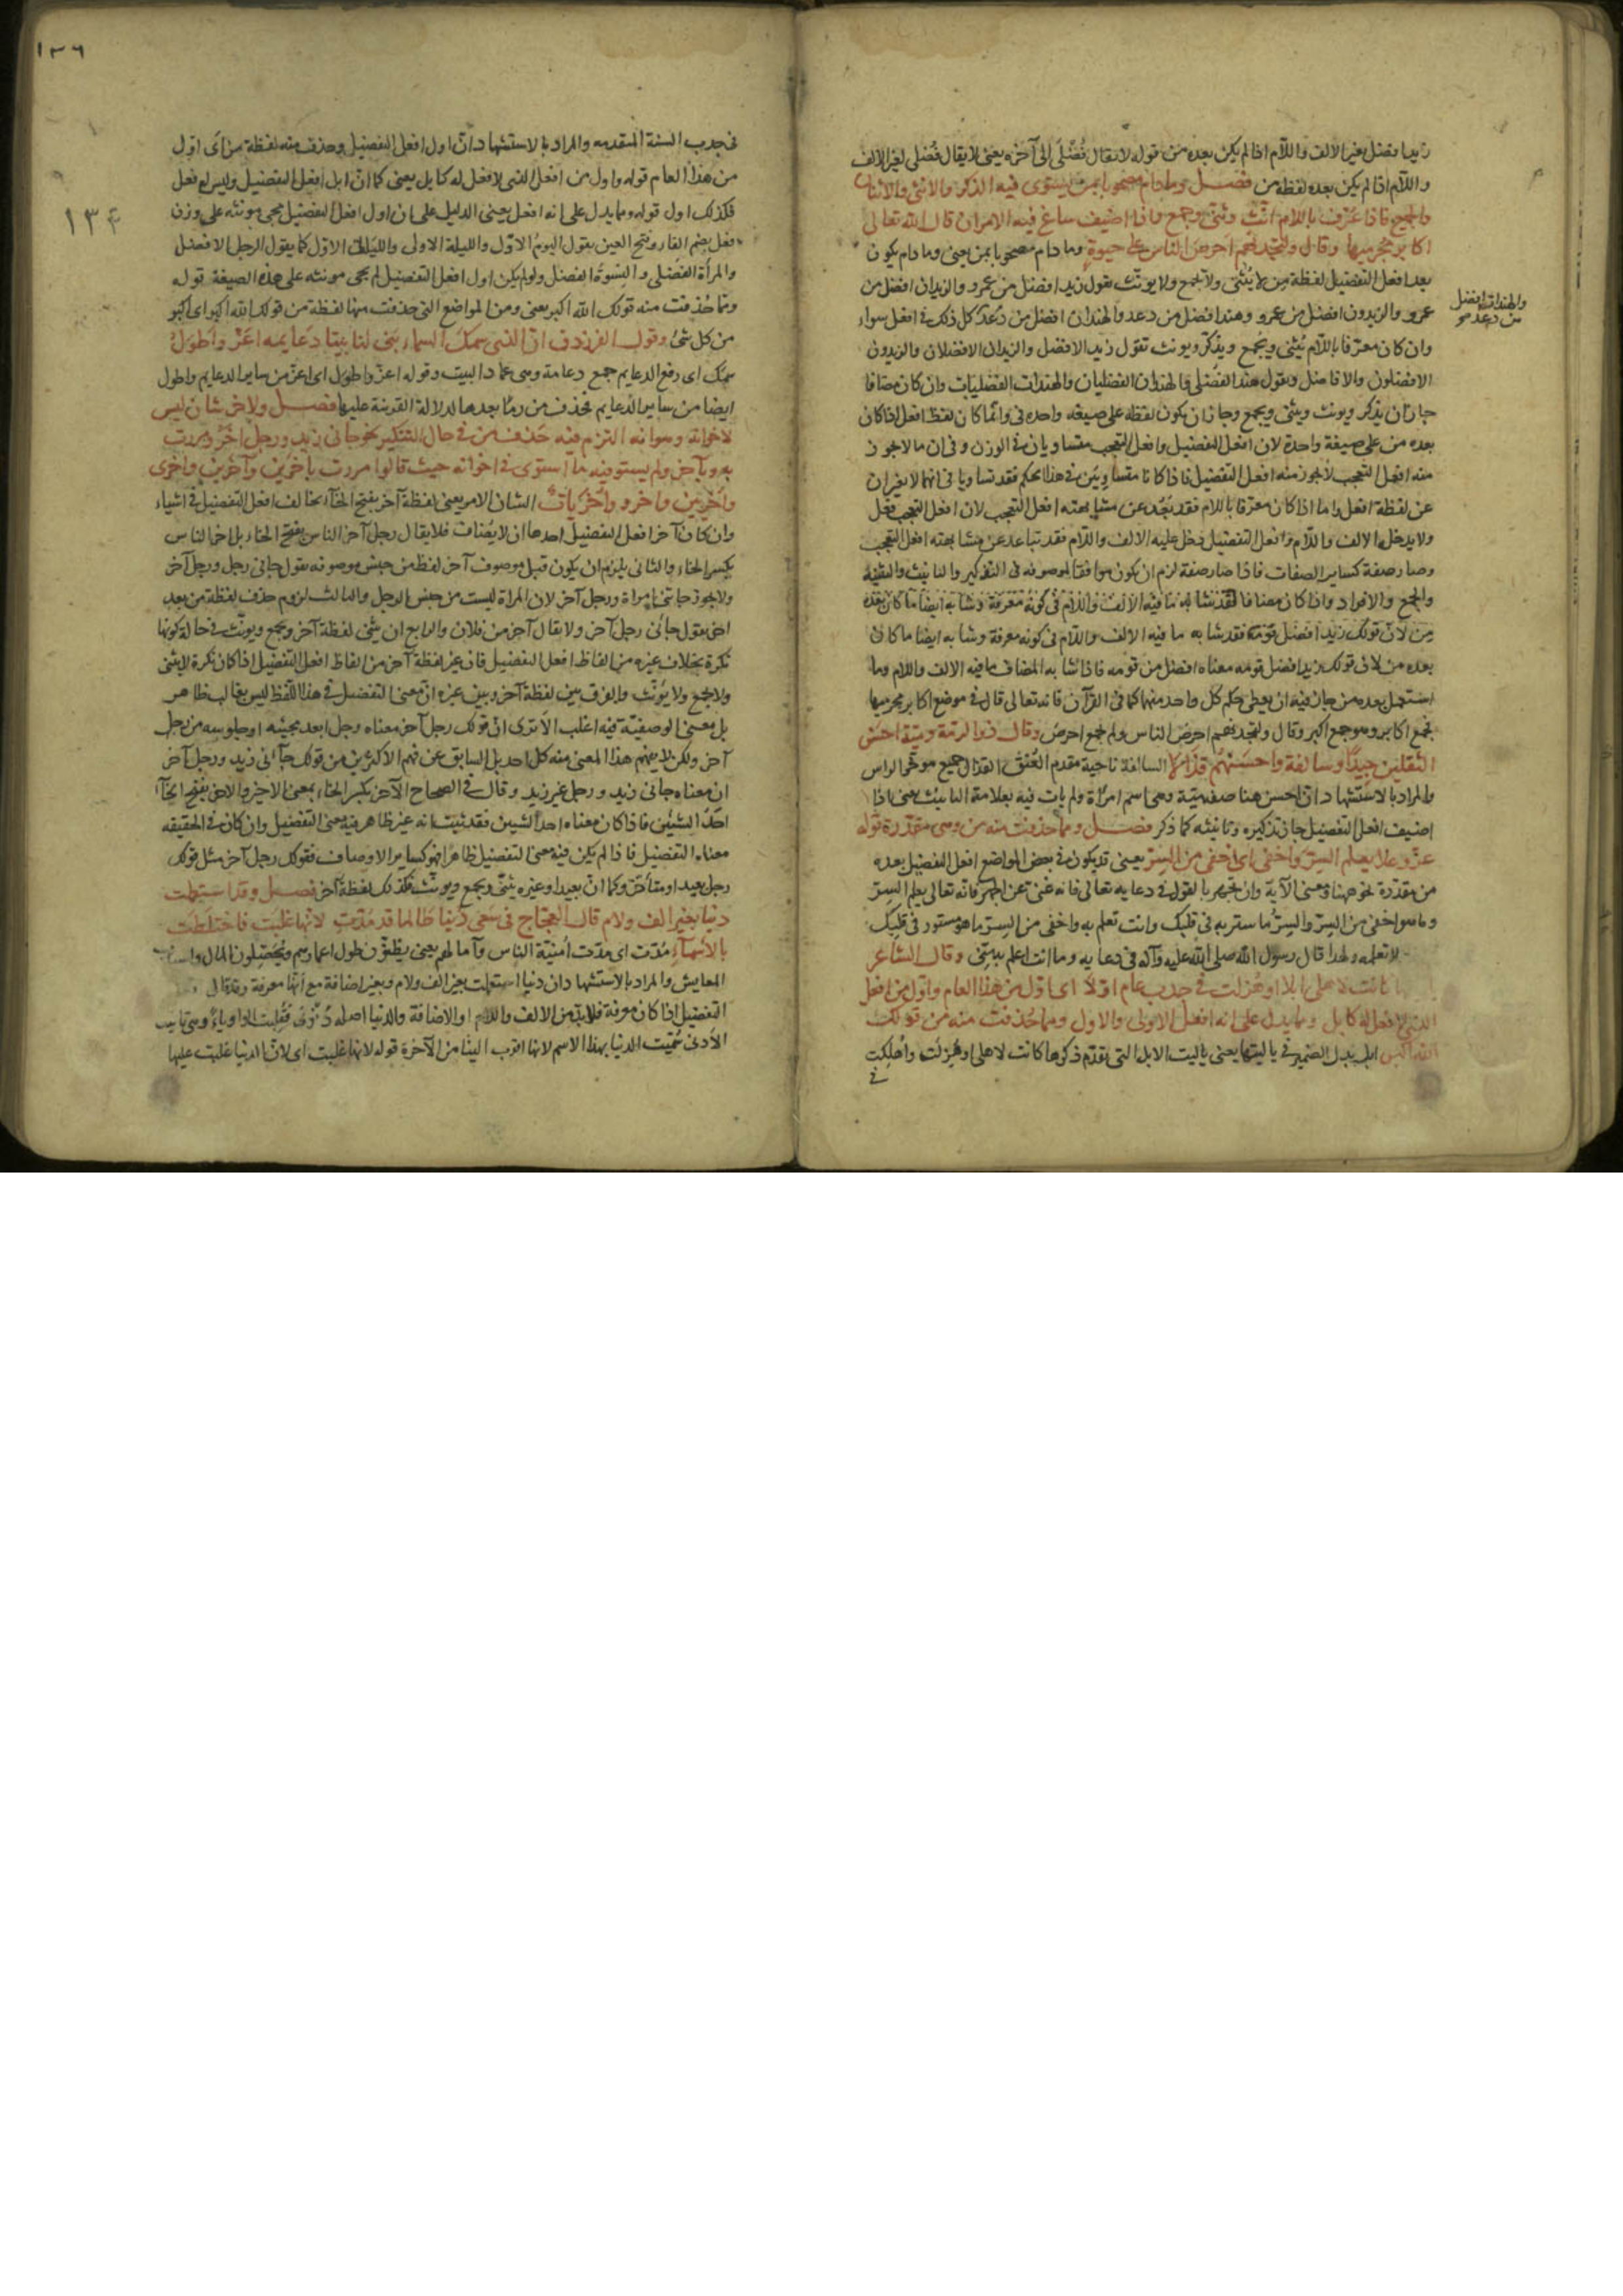 زيدا فضل بغير الالف واللام اذا لم يكن بعده من قوله لا يقال فُضْلَى الى آخره يعنى لا يقال فُضْلى بغير الالف
واللام اذا لم يكن بعده لفظة من فصل وما دام مصحوبا بمن يستوى فيه الذكر والانثى والاثنان
والجميع فاذا عُرّف باللام انّث وثنّى وجمع واذا اضيف ساغ فيه الامران قال الله تعالى
اكابر مجرميها وقال ولتجدنهم احرص الناس على حيوة وما دام مصحوبا بمن يعنى وما دام يكون
بعد افعل التفضيل لفظة من لا يُثنّى ولا يجمع ولا يونّث تقول زيد افضل من عمرو والزيدان افضل من
عمرو والزيدون افضل من عمرو وهند افضل من دعد والهندان افضل من دعد كل ذلك فى افعل سواء
والهندات افضل
من دعد صح
وان كان معرّفا باللام يُثنى ويُجمع ويذكّر ويونث تقول زيد الافضل والزيدان الافضلان والزيدون
الافضلون والافاضل وتقول هند الفُضْلى والهندان الفضليان والهندات الفضليات وان كان مضافا
جاز ان يذكر ويونث ويثنى ويجمع وجاز ان يكون لفظه على صيغه واحدة فى وانما كان لفظ افعل اذا كان
بعده من على صيغة واحدة لان افعل التفضيل وافعل التعجب متساويان فى الوزن وفى ان ما لا يجوز
منه افعل التعجب لا يجوز منه افعل التفضيل فاذا كانا متساويَين فى هذا الحكم فقد تساويا فى انهما لا يغيران
عن لفظة افعل واما اذا كان معرّفا باللام فقد بَعُد عن مشابهته افعل التعجب لان افعل التعجب فعل
ولا يدخله الالف واللام وافعل التفضيل دخل عليه الالف واللام فقد تباعد عن مشابهته افعل التعجب
وصار صفة كساير الصفات فاذا صار صفة لزم ان يكون موافقا لموصوفه فى التذكير والتانيث والتثنية
والجمع والافراد واذا كان مضافا فقد شابه ما فيه الالف واللام فى كونه معرفة وشابه ايضا ما كان بعده
من لان قولك زيد افضل قومه فقد شابه ما فيه الالف واللام فى كونه معرفة وشابه ايضا ما كان
بعده من لان قولك زيد افضل قومه معناه افضل من قومه فاذا شابه المضاف ما فيه الالف واللام وما
استعمل بعده من جاز فيه ان يعطى حكم كل واحد منهما كما فى القرآن فانه تعالى قال فى موضع اكابر مجرميها
فجمع اكابر وهو جمع اكبر وقال ولتجدنهم احرص الناس ولم يجمع احرص وقال ذو الرمّة وميّة احسن
الثقلين جيدًا وسالفة واحسنهُم قذالا السالفة ناحية مقدم العُنُق القذال جميع موخر الراس
والمراد بالاستشهاد ان احسن هنا صفه ميّة وهى اسم امرأة ولم يات فيه بعلامة التانيث يعنى اذا
اضيف افعل التفضيل جاز تذكيره وتانيثه كما ذكر فصل ومما حذفت منه من وهى مقدّرة قوله
عزّ وعلا يعلم السرّ واخفى اى اخفى من السرّ يعنى قد يكون فى بعض المواضع افعل التفضيل بعده
من مقدّرة نحو هنا ومعنى الآية وان تجهر بالقول فى دعايه تعالى فانه غنى عن الجهر فانه تعالى يعلم السرّ
وما هو اخفى من السرّ والسرّ ما ستر به فى قلبك وانت تعلم به واخفى من السرّ ما هو مستور فى قلبك
لا تعلمه ولهذا قال رسول الله صلى الله عليه وآله فى دعايه وما انت اعلم به منى وقال الشاعر
كانت لاهلى ابلا او هُزلت فى جدب عام اوّلا اى اوّل من هذا العام واوّل من افعل
الذى لا فعل له كابل ومما يدل على انه افعل الاولى والاول ومما حُذفت منه من قولك
الله اكبر ابلا بدل الضمير فى ياليتها يعنى ياليت الابل التى تقدّم ذكرها كانت لاهلى او هُزلت واُهلكت
فى
١٣٦
١٣٤
فى جدب السنة المتقدمه والمراد بالاستشهاد انّ اول افعل التفضيل وحذف منه لفظة من اى اوّل
من هذا العام قوله واول من افعل الذى لا فعل له كابل يعنى كما انّ ابل افعل التفضيل وليس له فعل
فكذلك اول قوله ومما يدل على انه افعل يعنى الدليل على ان اول افعل التفضيل مجى مونثه على وزن
فعل بضم الفاء وفتح العين تقول اليومُ الاوّل والليلة الاولى والليالى الاوَل كما يقول الرجل الافضل
والمرأة الفُضلى والنسوة الفضل ولو لم يكن اول افعل التفضيل لم يجى مونثه على هذه الصيغة قوله
ومما حُذفت منه قولك الله اكبر يعنى ومن المواضع التى حذفت منها لفظة من قولك الله اكبر اى اكبر
من كل شئ وقول الفرزدق ان الذى سمك السماء بنى لنا بيتا دعايمه اعزّ واطول
سمك اى رفع الدعايم جمع دعامة وهى عماد البيت وقوله اعزّ واطول اى اعزّ من ساير الدعايم واطول
ايضا من ساير الدعايم فحذف من وما بعدها لدلالة القرينة عليها فصل ولآخر شان ليس
لاخواته وهو انه التزم فيه حذف من فى حال التنكير نحو جانى زيد ورجل آخر ومررت
به وبآخر ولم يستو فيه ما استوى فى اخواته حيث قالوا مررت بآخرَين وآخرِين واخرى
واُخريين واُخر واُخريات الشان الامر يعنى لفظة آخر بفتح الخاء يخالف افعل التفضيل فى اشياء
وان كان آخر افعل التفضيل احدها ان لا يضاف فلا يقال رجل آخر الناس بفتح الخاء بل آخر الناس
بكسر الخاء والثانى يلزم ان يكون قبل موصوف آخر لفظ من جنس موصوفه تقول جانى رجل ورجل آخر
ولا يجوز جاتنى امراة ورجل آخر لان المراة ليست من جنس الرجل والثالث لزوم حذف لفظة من بعد
آخر تقول جانى رجل آخر ولا يقال آخر من فلان والرابع ان يثنى لفظة آخر ويجمع ويونّث فى حالة كونها
نكرة بخلاف غيره من الفاظ افعل التفضيل فان غير لفظة آخر من الفاظ افعل التفضيل اذا كان نكرة لا يثنى
ولا يجمع ولا يُونّث والفرق بين لفظة آخر وبين غيره انّ معنى التفضيل فى هذا اللفظ ليس بغالب ظاهر
بل معنى الوصفيّة فيه اغلب الا ترى انّ قولك رجل آخر معناه رجل ابعد مجيئه او جلوسه من رجل
آخر ولكن لا يفهم هذا المعنى منه كل احد بل السابق عن فهم الاكثرين من قولك جآئنى زيد ورجل آخر
ان معناه جانى زيد ورجل غير زيد وقال فى الصحاح الآخر بكسر الخاء بمعنى الاخير والآخر بفتح الخآء
احد الشيئين فاذا كان معناه احد الشيئين فقد ثبت انه غير ظاهر فيه معنى التفضيل وان كان فى الحقيقه
معناه التفضيل فاذا لم يكن فيه معنى التفضيل ظاهرا فهو كساير الاوصاف فقولك رجل آخر مثل قولك
رجل بعيد او متأخر وكما انّ بعيدا وغيره يثنّى ويجمع ويونّث فكذلك لفظة آخر فصل وقد استعملت
دنيا بغير الف ولام قال العجّاج فى سَعْى دُنيا طالما قد مُدّتِ لانها غلبَت فاختلطَت
بالاَسمآء مُدّت اى مدّت اُمنيّة الناس وآمالهم يعنى يظنّون طول اعمارهم ويُحَصّلون المال واسباب
المعايش والمراد بالاستشهاد ان دنيا استعملت بغير الف ولام وبغير اضافة مع انها معرفة وقد قال
التفضيل اذا كان معرفة فلابدّ من الالف واللام او الاضافة والدنيا اصله دُنْوَى فقلبت الواو ياءً وهى تانيث
الاَدنى سُمّيت الدنيا بهذا الاسم لانها اقرب الينا من الآخرة قوله لانها غلبت اى لانّ الدنيا غلبت عليها